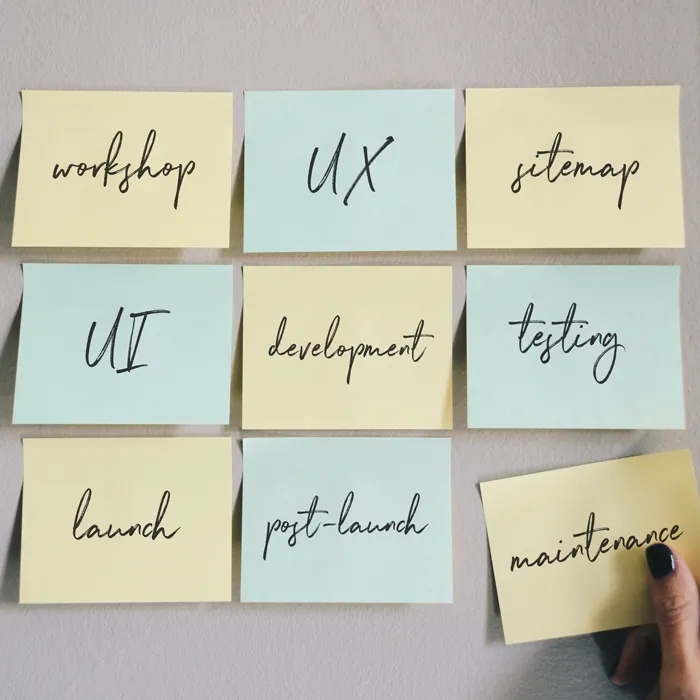 workshop
UX
sitemap
UI
development
testing
launch
post-launch
maintenance